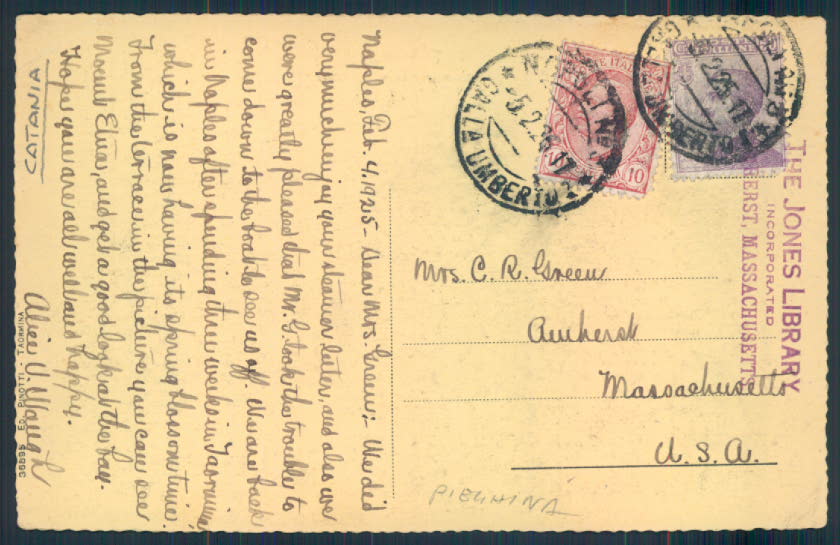 Naples, Feb. 4, 1925 - Dear Mrs. Green; - We did
very much enjoy your steamer letter, and also we
were greatly pleased that Mr. G. took the trouble to
come down to the boat to see us off. We are back
in Naples after spending three weeks in Taormina
which is now having its spring blossom time.
From the terrace in the picture you can see
Mount Etna, and get a good look at the bay.
Hope you are all well and happy.
Alice V. Waugh
CATANIA
36895 ED. PINOTTI - TAORMINA
NAPOLI
5.2.25.17
GALLA UMBERTO
10
UMBERTO
THE JONES LIBRARY
INCORPORATED
AMHERST, MASSACHUSETTS
Mrs. C. R. Green
Amherst
Massachusetts
U.S.A.